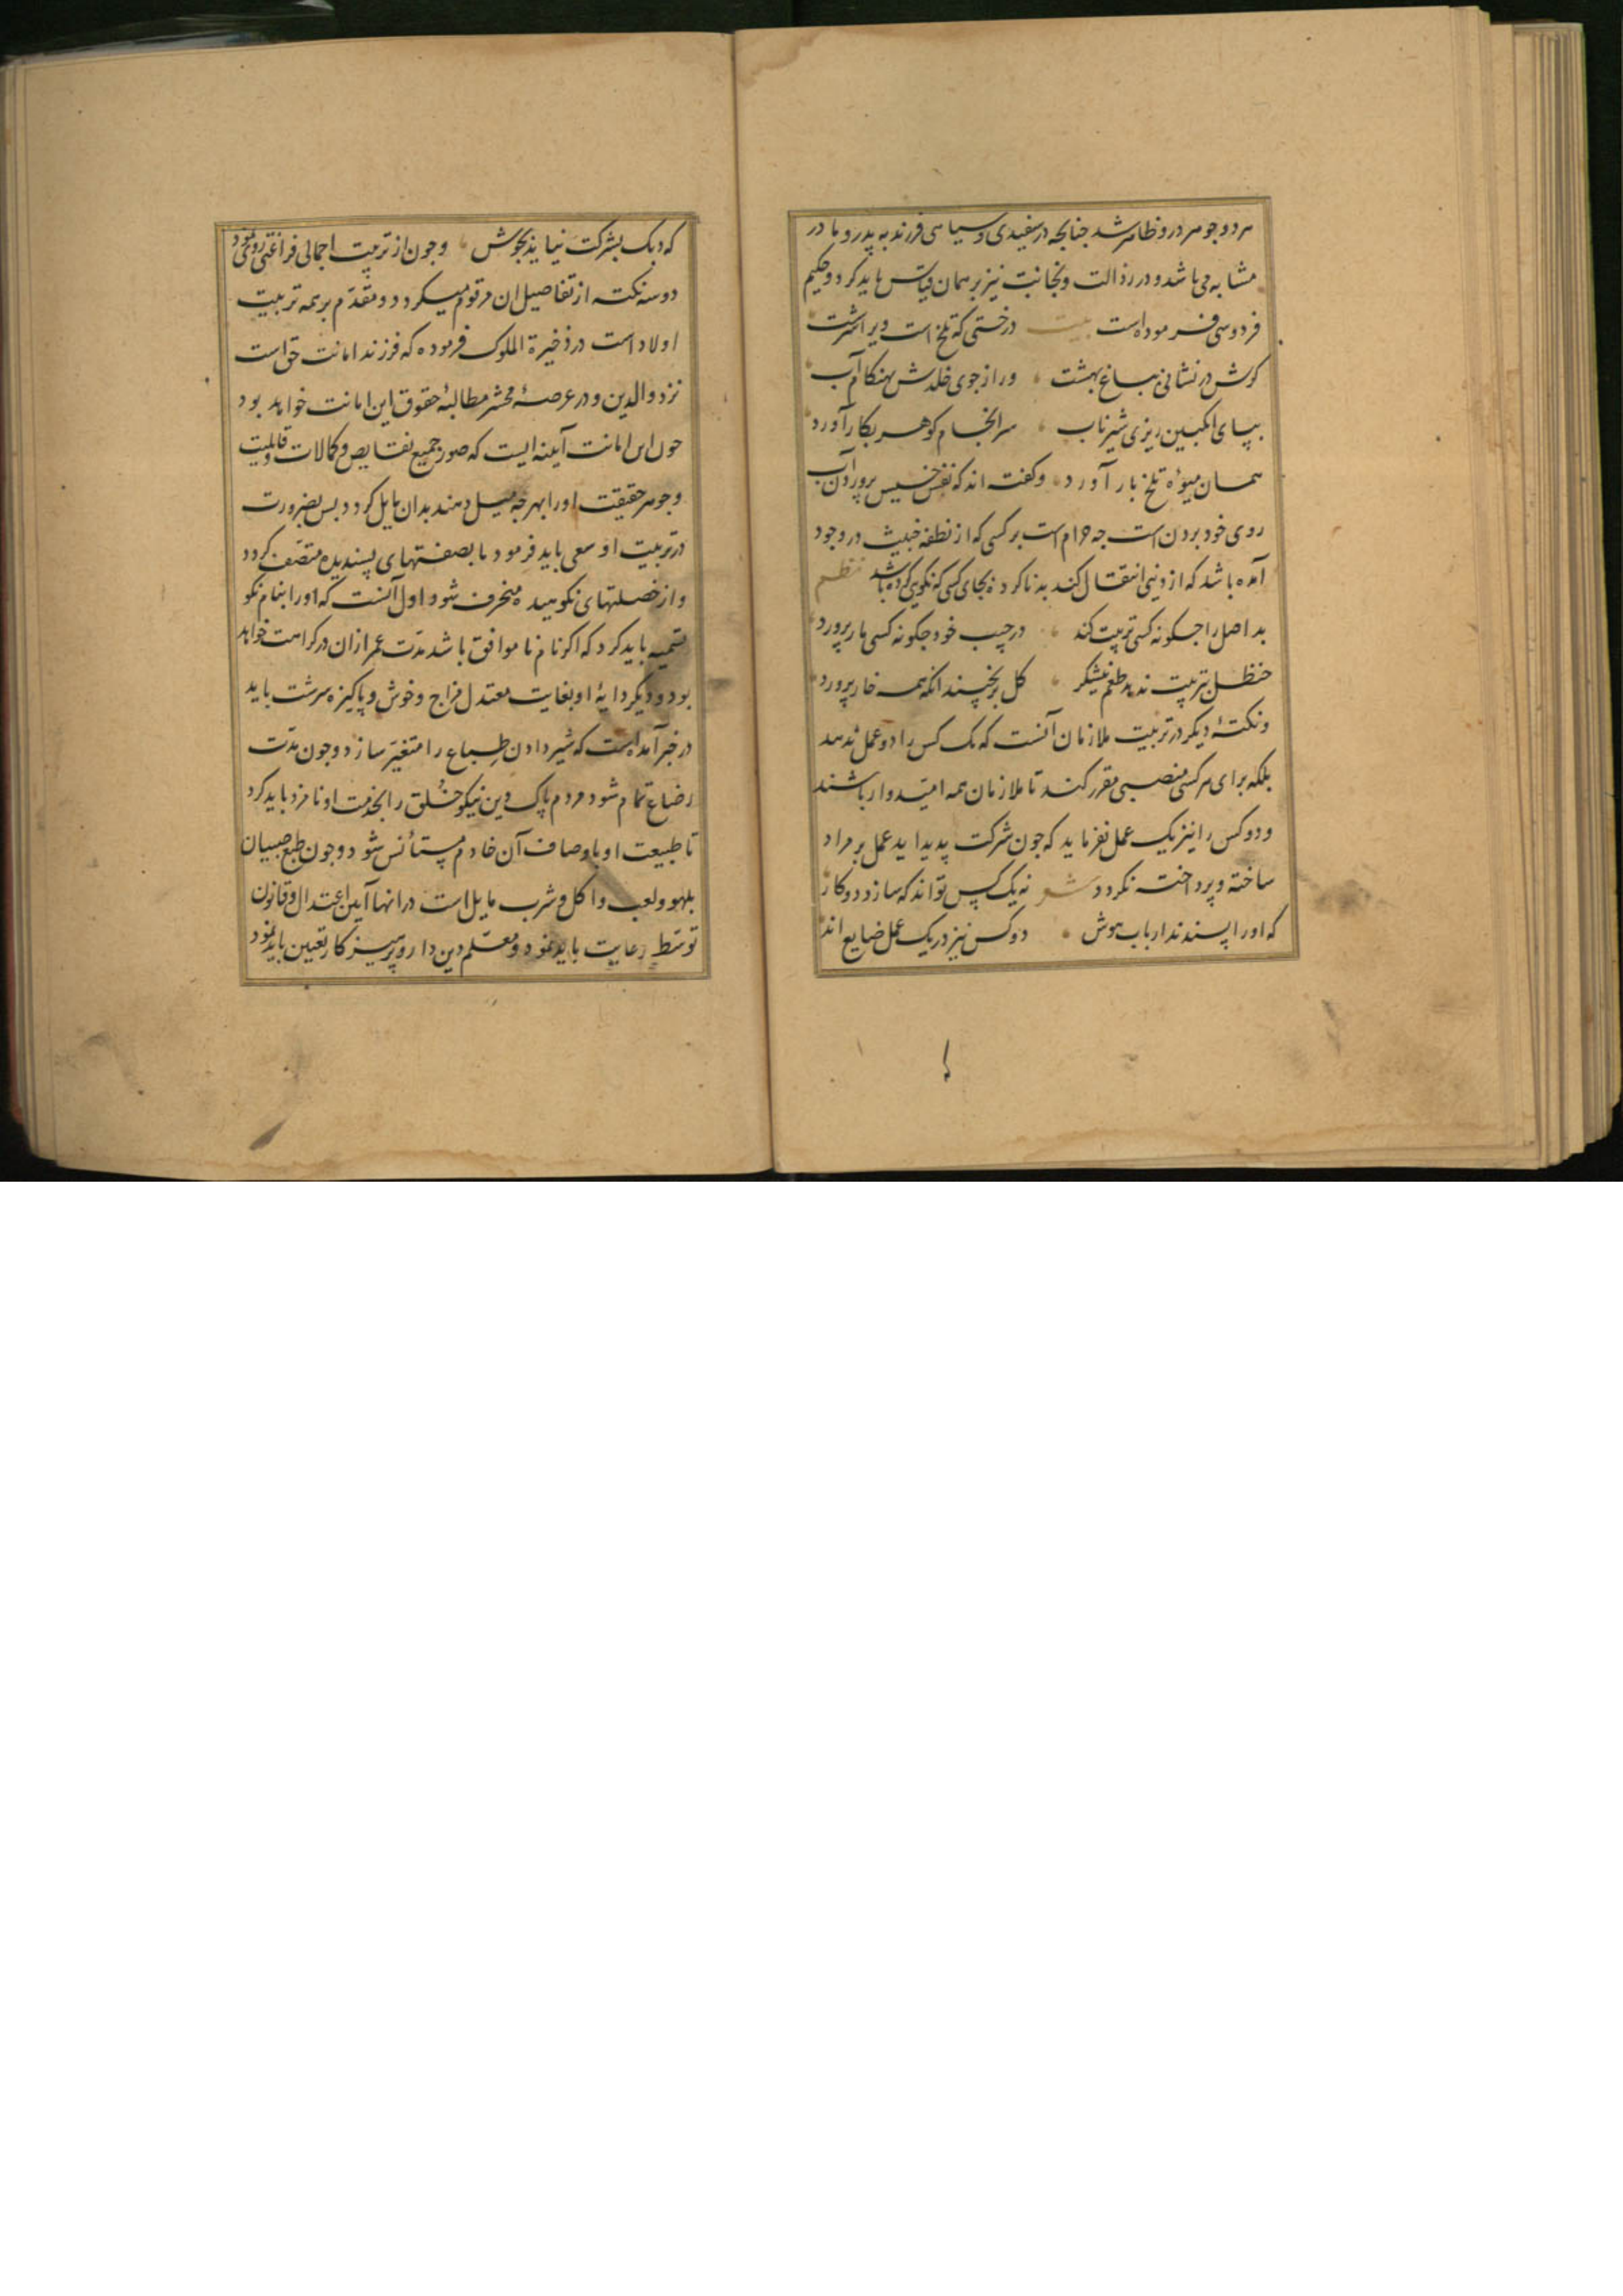 هر دو جوهر درو ظاهر شد جنانجه در سفیدی و سیاهی فرزند به پدر و مادر
مشابه می باشد و در رذالت و نجابت نیز بر همان قیاس باید کرد و حکیم
فردوسی فرموده است بیت درختی که تلخ است ویرا سرشت
کرش در نشانی بباغ بهشت ور از جوی خلدش بهنکام آب
ببیای انکبین ریزی شیر ناب سرانجام کوهر بکار آورد
همان میوۀ تلخ بار آورد و کفته اند که نفس خسیس پروردن آب
روی خود بردن است جه حرام است بر کسی که از نطفه خبیث در وجود
آمده باشد که از دنیی انتقال کند بد ناکرده بجای کسی که نکویی کرده باشد نظم
بد اصل را جکونه کسی تربیت کند در جیب خود جکونه کسی مار پرورد
حنظل بتربیت ندهد طعم نیشکر کل بر نچیند انکه همه خار پرورد
و نکتۀ دیکر در تربیت ملازمان آنست که یک کس را دو عمل ندهد
بلکه برای هر کسی منصبی مقرر کند تا ملازمان همه امیدوار باشند
و دو کس را نیز یک عمل نفرماید که جون شرکت پدید اید عمل بر مراد
ساخته و پرداخته نکردد شعر نه یک کس تواند که سازد دو کار
که اورا پسندند ارباب هوش دو کس نیز در یک عمل ضایع اند
که دیک بشرکت نیاید بجوش و جون از تربیت اجمالی فراغتی روی نمود
دو سه نکته از تفاصیل ان مرقوم میکردد و مقدم بر همه تربیت
اولاد است در ذخیرة الملوک فرموده که فرزند امانت حق است
نزد والدین و در عرصۀ محشر مطالبۀ حقوق این امانت خواهد بود
جون این امانت آینه ایست که صور جمیع نقایص و کمالات قابلیت
و جوهر حقیقت اورا بهر جه میل دهند بدان مایل کردد بس بضرورت
در تربیت او سعی باید فرمود تا بصفتهای پسندیده متصف کردد
و از خصلتهای نکوهیده منحرف شود و اول آنست که اورا بنام نکو
تسمیه باید کرد که اکر نام ناموافق باشد مدت عمر ازان در کراهت خواهد
بود و دیکر دایۀ او بغایت معتدل مزاج و خوش و پاکیزه سرشت باید
در خبر آمده است که شیر دادن طباع را متغیر سازد و جون مدت
رضاع تمام شود مردم پاک دین نیکو خلق را بخدمت او نامزد باید کرد
تا طبیعت او باوصاف آن خادم مستأنس شود و جون طبع صبیان
بلهو و لعب و اکل و شرب مایل است در انها آیین اعتدال و قانون
توسط رعایت باید نمود و معلم دین دار و پرهیز کار تعیین باید نمود